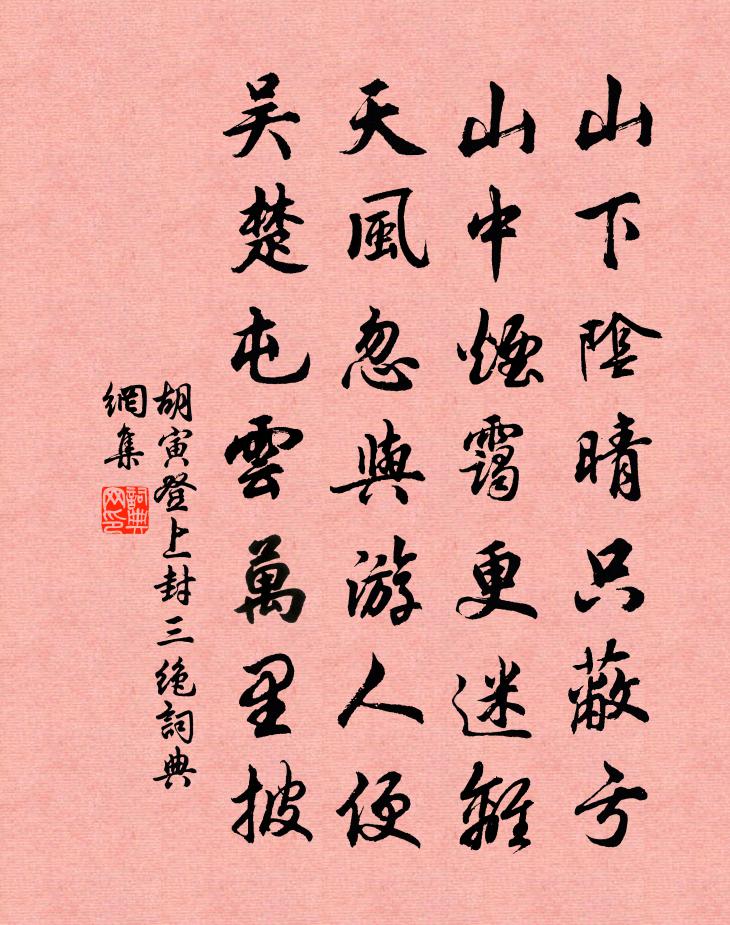 山下陰晴只蔽亏
山中煙靄更迷離
天風忽與游人便
吴楚屯雲萬里披
胡寅登上封三绝詞典
網集
詞典
网印